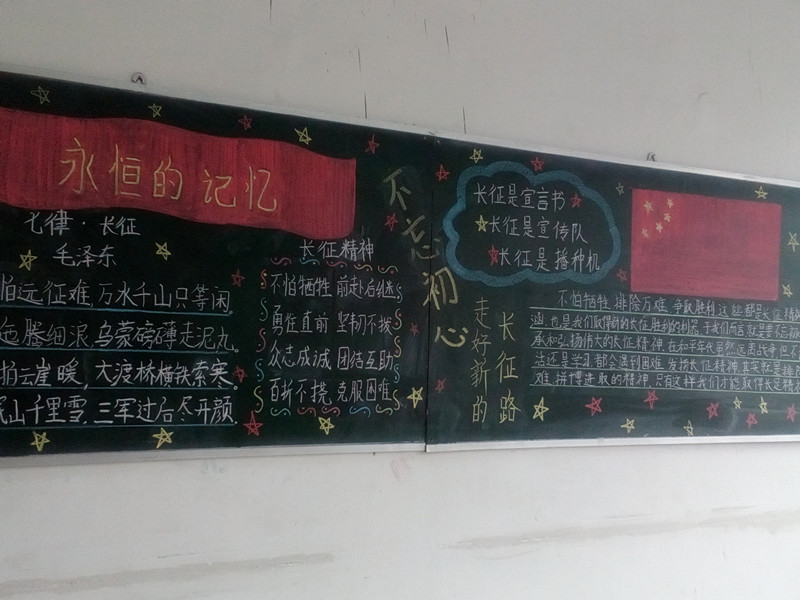 永恒的记忆
七律·长征
毛泽东
怕远征难,万水千山只等闲。
逶腾细浪,乌蒙磅礴走泥丸。
拍云崖暖,大渡桥横铁索寒。
岷山千里雪,三军过后尽开颜。
长征精神
不怕牺牲 前赴后继
勇往直前 坚韧不拔
众志成诚 团结互助
百折不挠 克服困难
不忘初心
走好新的
长征路
长征是宣言书
长征是宣传队
长征是播种机
不怕牺牲,排除万难,争取胜利,这些都是长征精
涵,也是我们取得新的长征胜利的利器,于我们而言就是要不忘初
承和弘扬伟大的长征精神,在和平年代虽然远离战争,但不
活还是学习都会遇到困难,发扬长征精神其实就是
难,拼搏进取的精神,只有这样我们才能取得